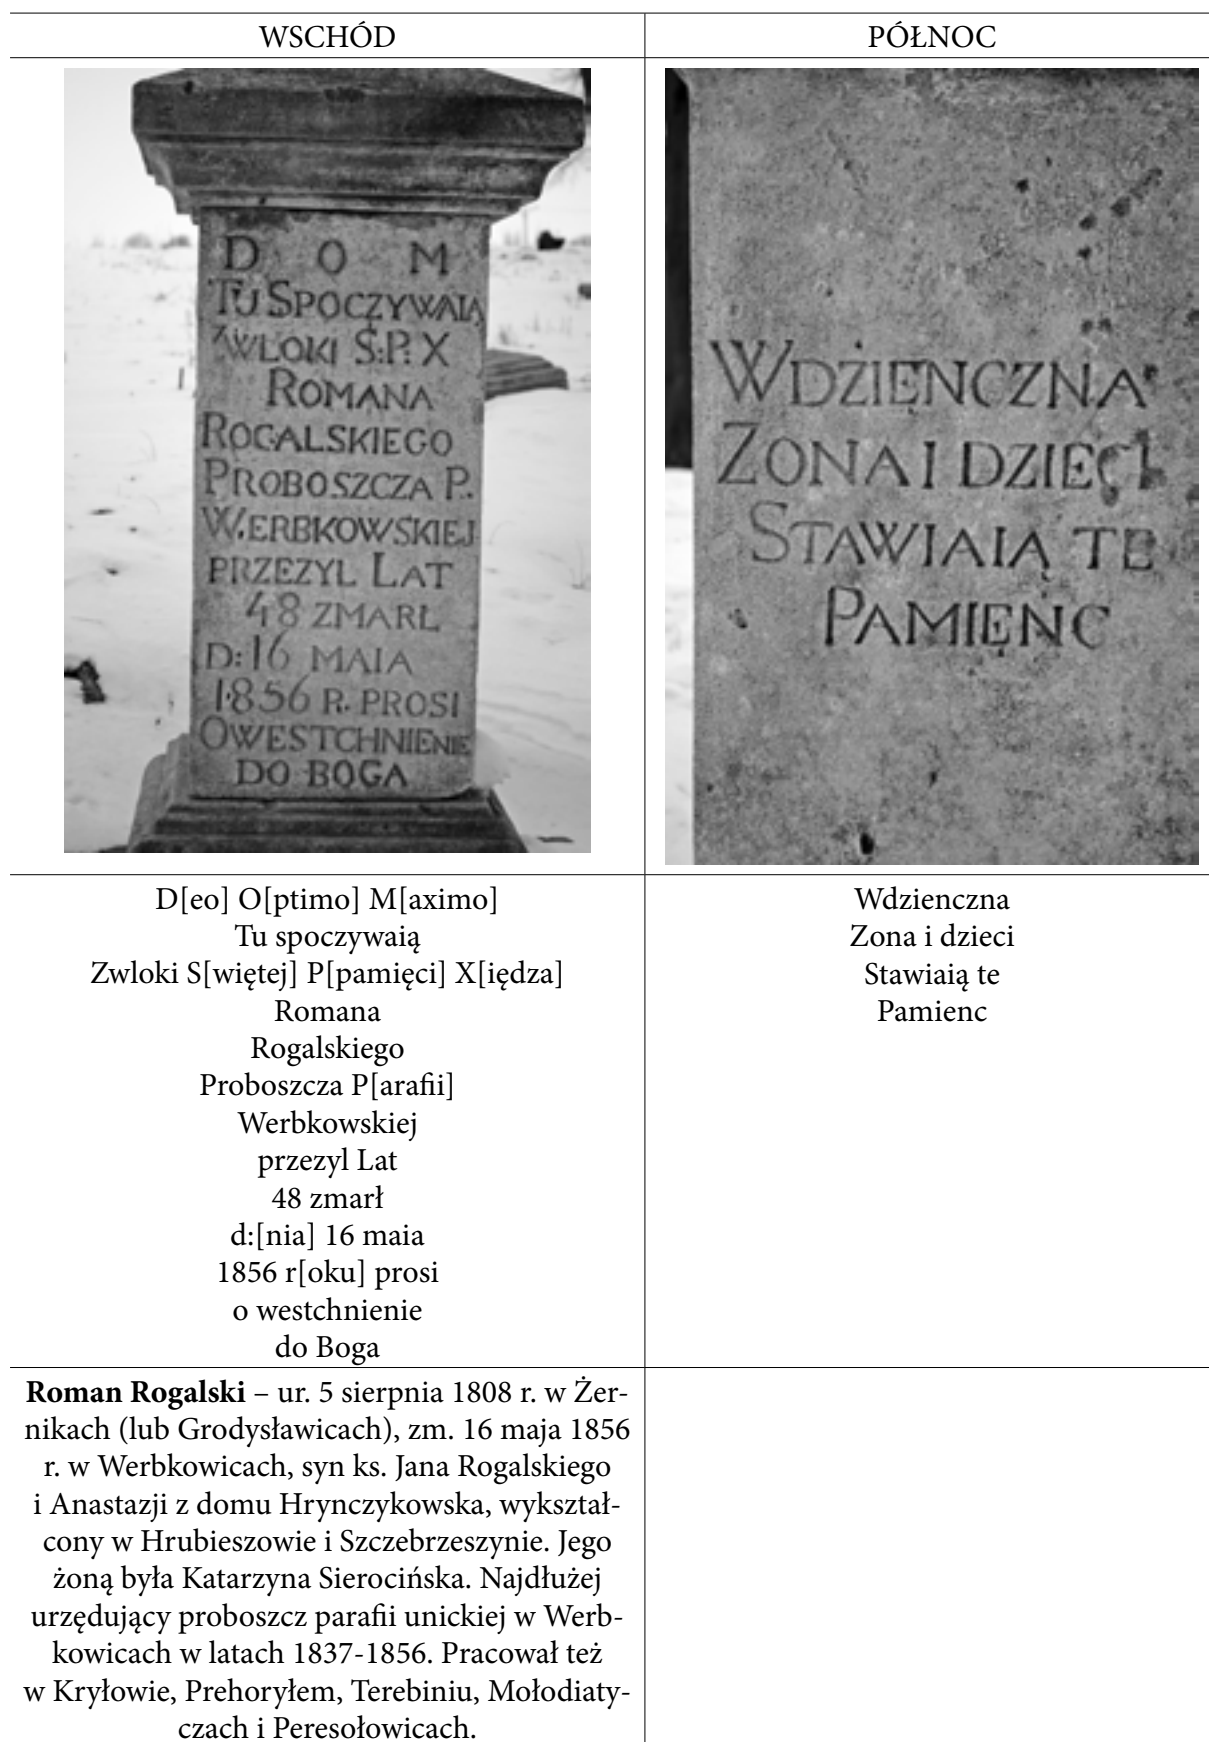 WSCHÓD
PÓŁNOC
D O M
TU SPOCZYWAIĄ
ZWLOKI S:P: X
ROMANA
ROGALSKIEGO
PROBOSZCZA P.
WERBKOWSKIEJ
PRZEZYL LAT
48 ZMARL
D: 16 MAIA
1856 R. PROSI
OWESTCHNIENIE
DO BOGA
WDŻIENCZNA
ZONA I DZIECI
STAWIAIĄ TE
PAMIENC
D[eo] O[ptimo] M[aximo]
Tu spoczywaią
Zwloki S[więtej] P[pamięci] X[iędza]
Romana
Rogalskiego
Proboszcza P[arafii]
Werbkowskiej
przezyl Lat
48 zmarł
d:[nia] 16 maia
1856 r[oku] prosi
o westchnienie
do Boga
Wdzienczna
Zona i dzieci
Stawiaią te
Pamienc
Roman Rogalski – ur. 5 sierpnia 1808 r. w Żer-
nikach (lub Grodysławicach), zm. 16 maja 1856
r. w Werbkowicach, syn ks. Jana Rogalskiego
i Anastazji z domu Hrynczykowska, wykształ-
cony w Hrubieszowie i Szczebrzeszynie. Jego
żoną była Katarzyna Sierocińska. Najdłużej
urzędujący proboszcz parafii unickiej w Werb-
kowicach w latach 1837-1856. Pracował też
w Kryłowie, Prehoryłem, Terebiniu, Mołodiaty-
czach i Peresołowicach.